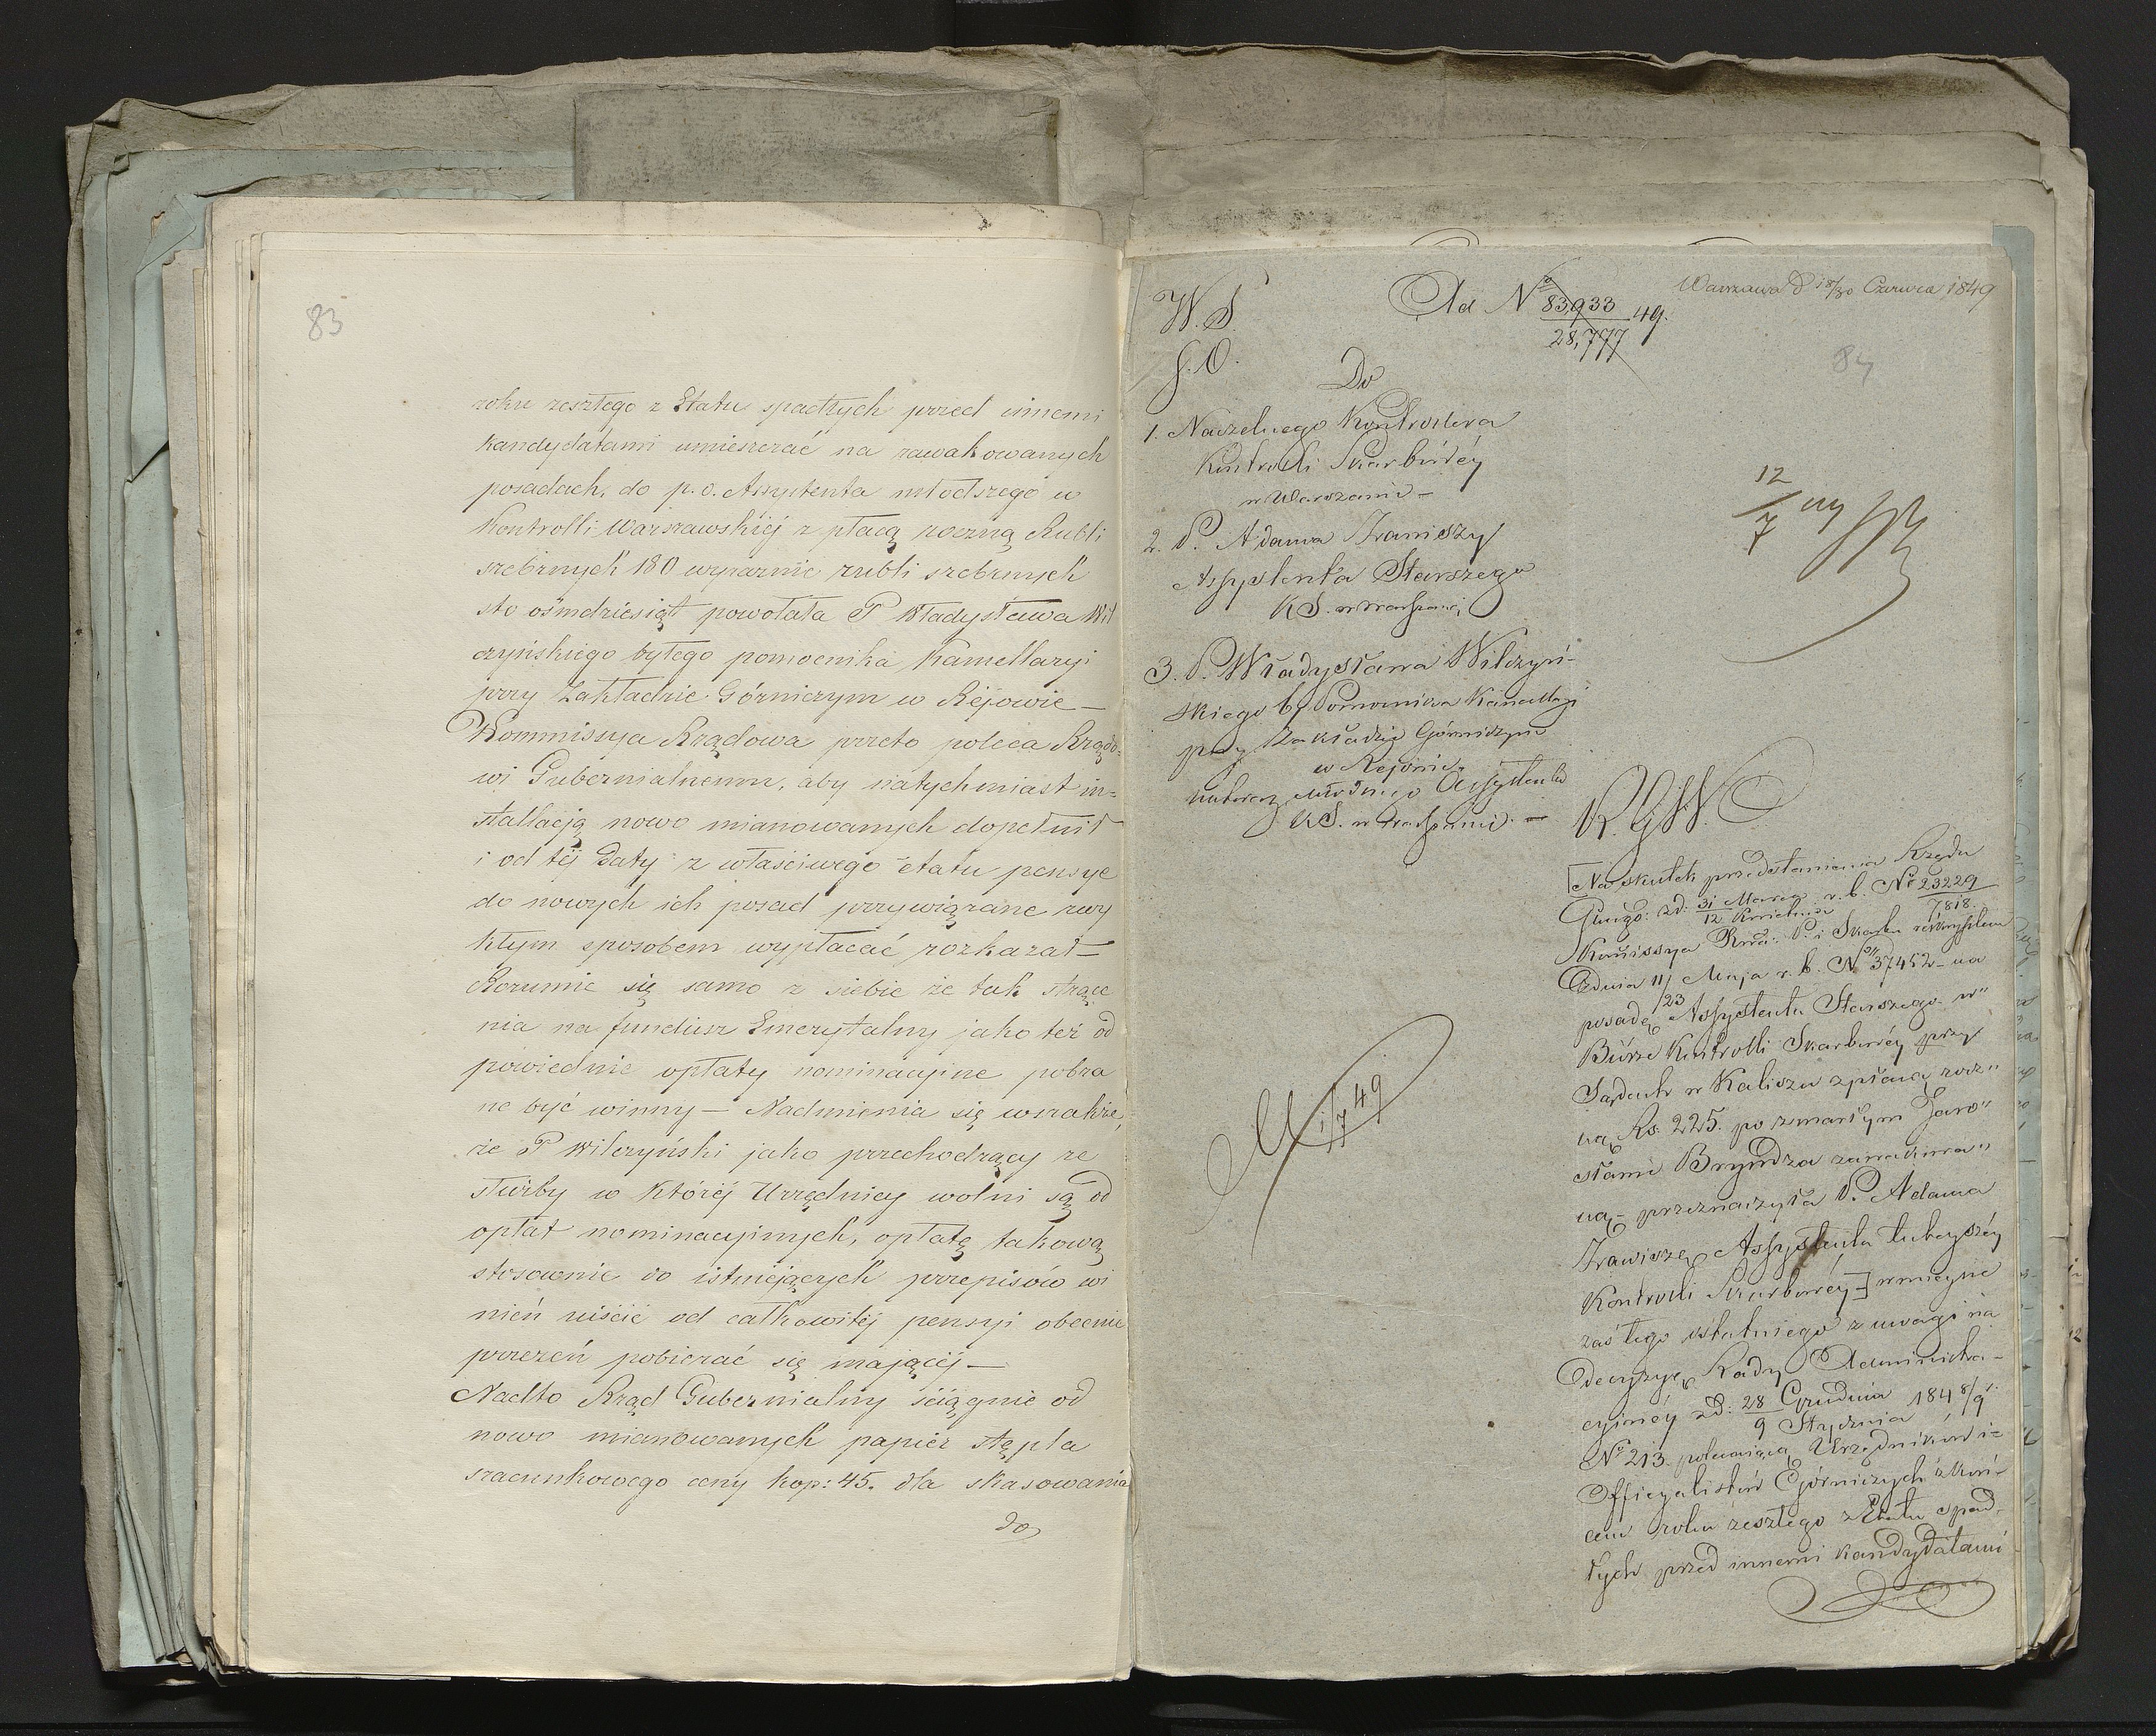 83
roku zeszłego z Etatu spadłych przed innemi
kandydatami umieszczać na zawakowanych
posadach, do p.o. Assystenta młodszego w
Kontrolli Warszawskiéj z płacą roczną Rubli
srebrnych 180 wyraznie rubli srebrnych
sto ośmdziesiąt powołała P Władysława Wil
czyńskiego byłego pomocnika Kancellaryi
przy Zakładzie Górniczym w Rejowie —
Kommissya Rządowa przeto poleca Rządo-
wi Gubernialnemu, aby natychmiast in-
stallacją nowo mianowanych dopełnił
i od téj daty z właściwego etatu pensye
do nowych ich posad przywiązane zwy
kłym sposobem wypłacać rozkazał —
Rozumie się samo z siebie że tak strące
nia na fundusz Emerytalny jako też od
powiednie opłaty nominacyjne pobra
ne być winny — Nadmienia się wszakże,
że P Wilczyński jako przechodzący ze
służby w któréj Urzędnicy wolni są od
opłat nominacyjnych, opłatę takową
stosownie do istniejących przepisów wi
nień uiścić od całkowitéj pensyi obecnie
przezeń pobierać się mającéj —
Nadto Rząd Gubernialny ściągnie od
nowo mianowanych papier stępla
szacunkowego ceny kop: 45. dla skasowania
do
W. S.
Ad No 83,933/28,777 49.
Warszawa d 18/30 Czerwca 1849
84
Do
1. Naczelnego Kontrollera
Kontrolli Skarbowéj
w Warszawie —
2. P. Adama Zawiszy
Assystenta Starszego
KS. w Warszawie
3. P. Władysława Wilczyń-
skiego b. Pomocnika Kancellaryi
przy Zakładzie Górniczym
w Rejowie
Assystenta
KS. w Warszawie. —
12/7
1/7 49
Na skutek przedstawienia Rządu
Gub. z d: 31 Marca/12 Kwietnia r. b. No 23229/7818.
Kommissya Rzą: P. i Skarbu reskryptem
z dnia 11/23 Maja r. b. No 37452 na
posadę Assystenta Starszego w
Biurze Kontrolli Skarbowéj przy
w Kaliszu z płacą rocz
ną Rs. 225. po zmarłym Jaro
sławie Bryndza zawakowa
ną — przeznaczyła P. Adama
Zawiszę Assystenta tutejszéj
Kontrolli Skarbowéj] w miejsce
zaś tego ostatniego z uwagi na
decyzyę Rady Administra-
cyjnéj z d: 28 Grudnia/9 Stycznia 1848/9 r.
No 213. polecającą Urzędników i
Officyalistów Górniczych z koń-
cem roku zeszłego z Etatu spad-
łych przed innemi kandydatami